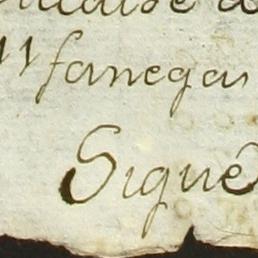 11 fanegas
Sigue